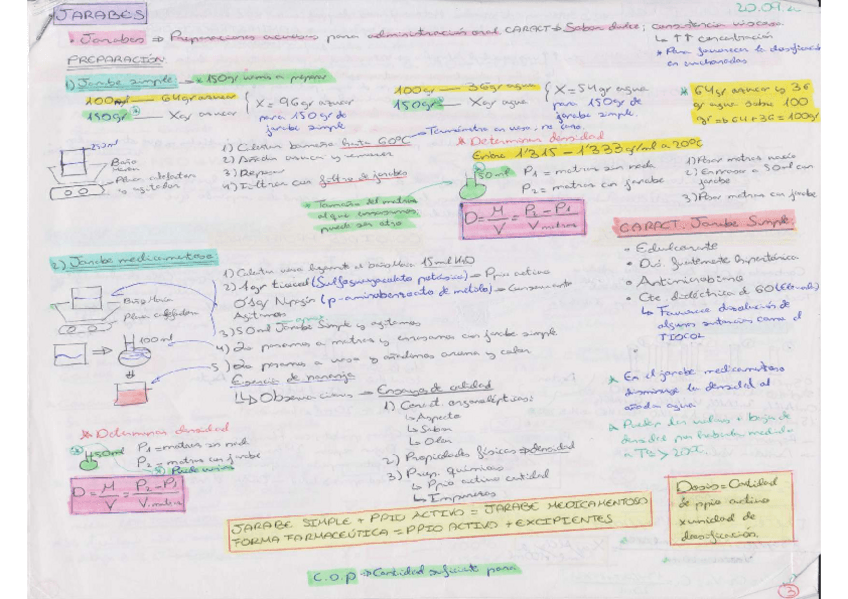 JARABES
20.09.
* Jarabes => Preparaciones acuosas para administración oral CARACT → Sabor dulce, consistencia viscosa
↳ ↑↑ concentración
* Para favorecer la dosificación en cucharadas
PREPARACIÓN
1) Jarabe simple → * 150gr vamos a preparar
100 — 64gr azucar
150gr — Xgr azucar
X = 96gr azucar
para 150gr de
jarabe simple
100gr — 36gr agua
150gr — Xgr agua
X = 54gr agua
para 150gr de
jarabe simple.
* 64gr azucar y 36
gr agua sobre 100
gr => 64+36 = 100gr
Baño
María
Placa calefactora
y agitador
1) Calentar hasta 60ºC → Termómetro en vaso, no
2) Añadir azucar y remover
3) Reposar
4) Filtrar con filtro de jarabes
* Tamaño del matraz
al que enrasamos
puede ser otro
* Determinar densidad
Entre 1'315 - 1'333 g/ml a 20ºC
50ml
P1 = matraz sin nada
P2 = matraz con jarabe
1) Pesar matraz vacío
2) Enrasar a 50ml con
jarabe
3) Pesar matraz con jarabe
D = M/V = P2 - P1/V matraz
CARACT. Jarabe Simple.
• Edulcorante
• Dis. fuertemente hipertónica
• Antimicrobiano
• Cte dieléctrica de 60
↳ Favorece disolución de
algunas sustancias como el
TIOCOL
2) Jarabe medicamentoso
Baño María
Placa calefactora
100ml
1) Calentar vaso baño María 15ml H2O
2) 1gr tiocol (Sulfoguayacolato potásico) → Ppio activo
0'1gr Nipagín (p-aminobenzoato de metilo) → Conservante
Agitamos
3) 50ml Jarabe Simple y agitamos
4) Lo pasamos a matraz y enrasamos con jarabe simple
5) Lo pasamos a vaso y añadimos aroma y color
Esencia de naranja
↳ Observaciones → Ensayos de calidad
1) Caract. organolépticas:
↳ Aspecto
↳ Sabor
↳ Olor
2) Propiedades físicas → densidad
3) Prop. químicas
↳ Ppio activo cantidad
↳ Impurezas
* En el jarabe medicamentoso
disminuye la densidad al
añadir agua
* Determinar densidad
50ml
P1 = matraz sin nada
P2 = matraz con jarabe
D = M/V = P2 - P1/V matraz
JARABE SIMPLE + PPIO ACTIVO = JARABE MEDICAMENTOSO
FORMA FARMACEÚTICA = PPIO ACTIVO + EXCIPIENTES
Dosis = Cantidad
de ppio activo
x unidad de
dosificación.
C.S.P → Cantidad suficiente para
3